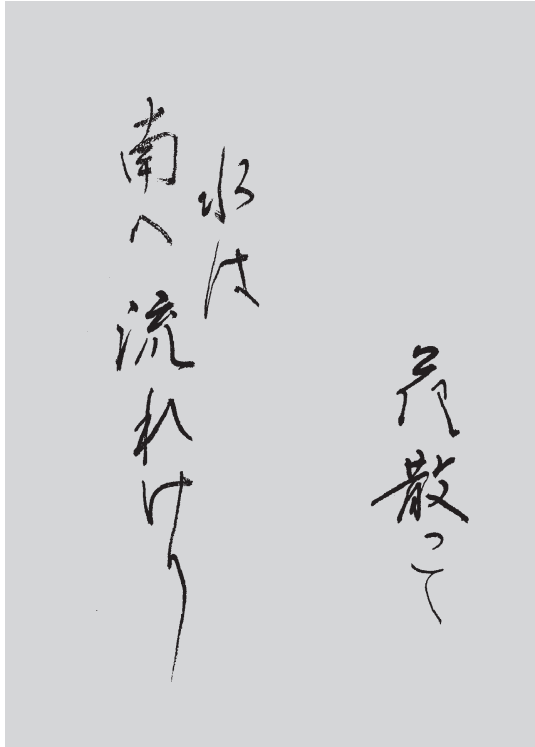 花散つて
水は
南へ流れけり